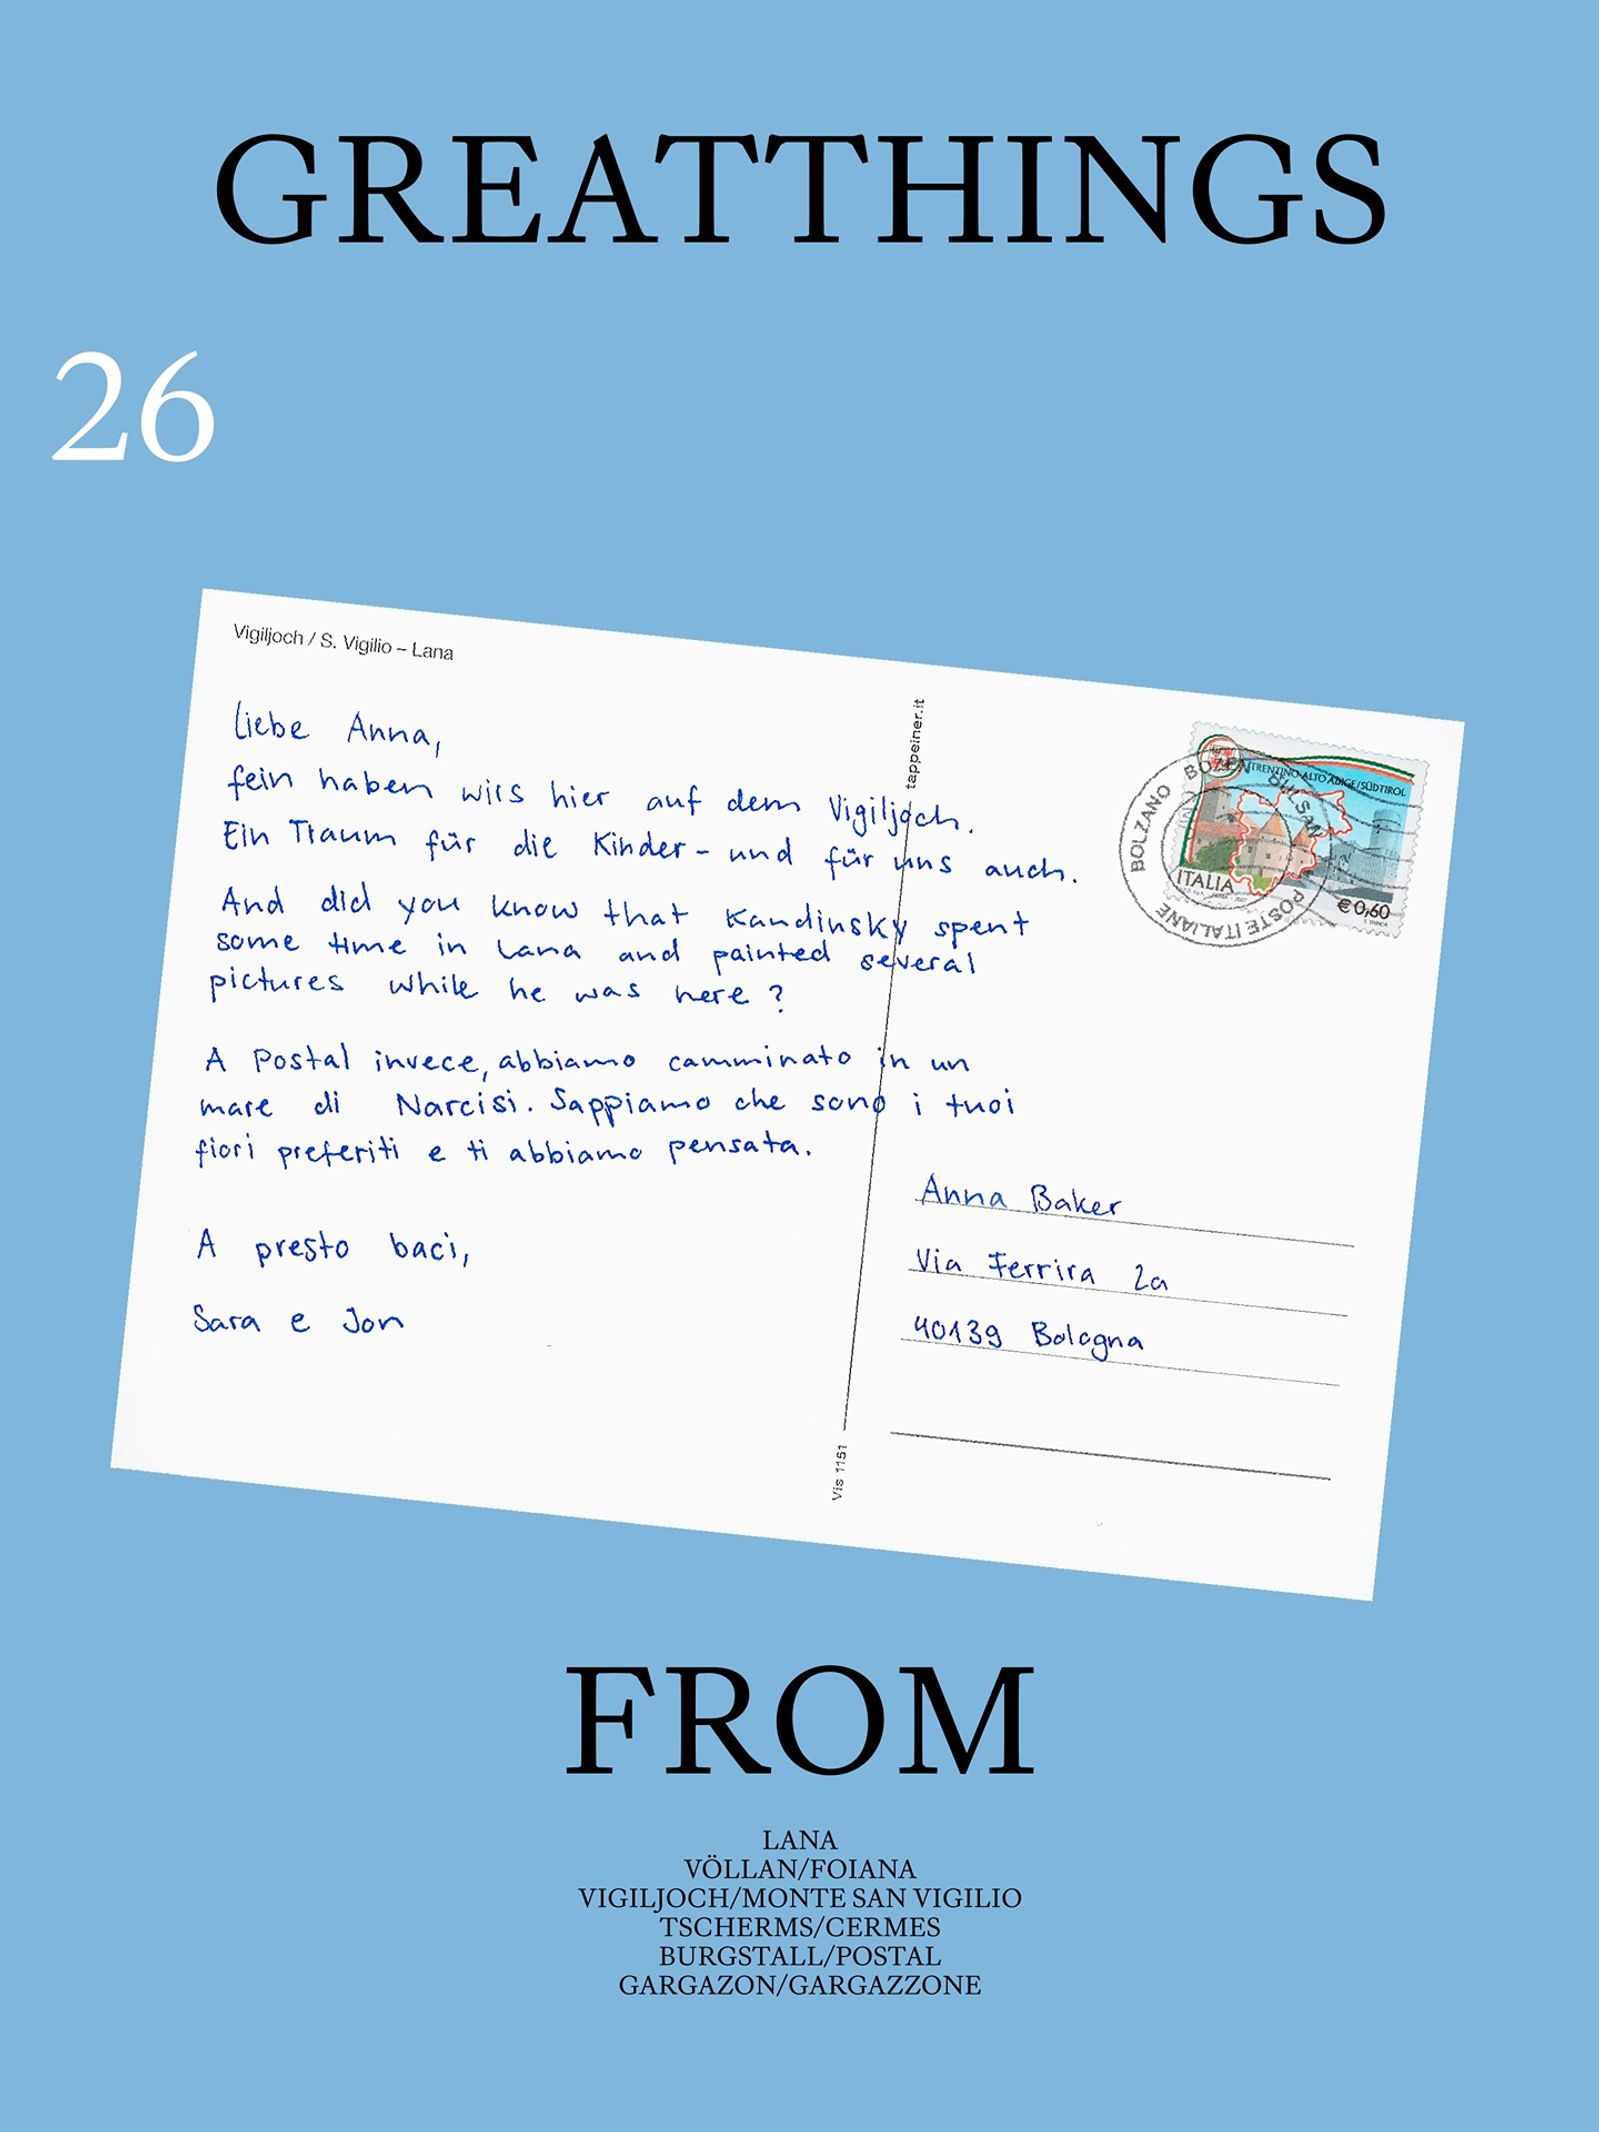 GREATTHINGS
26
Vigiljoch / S. Vigilio – Lana
Liebe Anna,
fein haben wirs hier auf dem Vigiljoch.
Ein Traum für die Kinder - und für uns auch.
And did you know that Kandinsky spent
some time in Lana and painted several
pictures while he was here?
A Postal invece, abbiamo camminato in un
mare di Narcisi. Sappiamo che sono i tuoi
fiori preferiti e ti abbiamo pensata.
A presto baci,
Sara e Jon
tappeiner.it
Vis 1151
TRENTINO-ALTO ADIGE/SÜDTIROL
ITALIA
€0,60
BOLZANO BOZEN BULSAN
POSTE ITALIANE
Anna Baker
Via Ferrira 2a
40139 Bologna
FROM
LANA
VÖLLAN/FOIANA
VIGILJOCH/MONTE SAN VIGILIO
TSCHERMS/CERMES
BURGSTALL/POSTAL
GARGAZON/GARGAZZONE